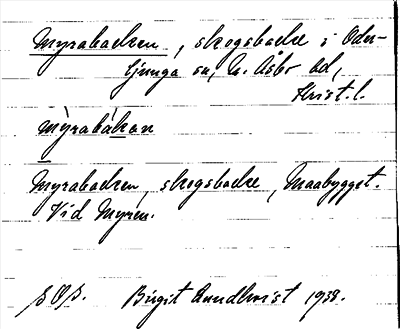 Myrabacken, skogsbacke i Oder-
ljunga sn, N. Åsbo hd,
Krist. l.
mỳrabákan
Myrabacken, skogsbacke, Maabygget.
Vid Myren.
SOS. Birgit Rundkvist 1938.